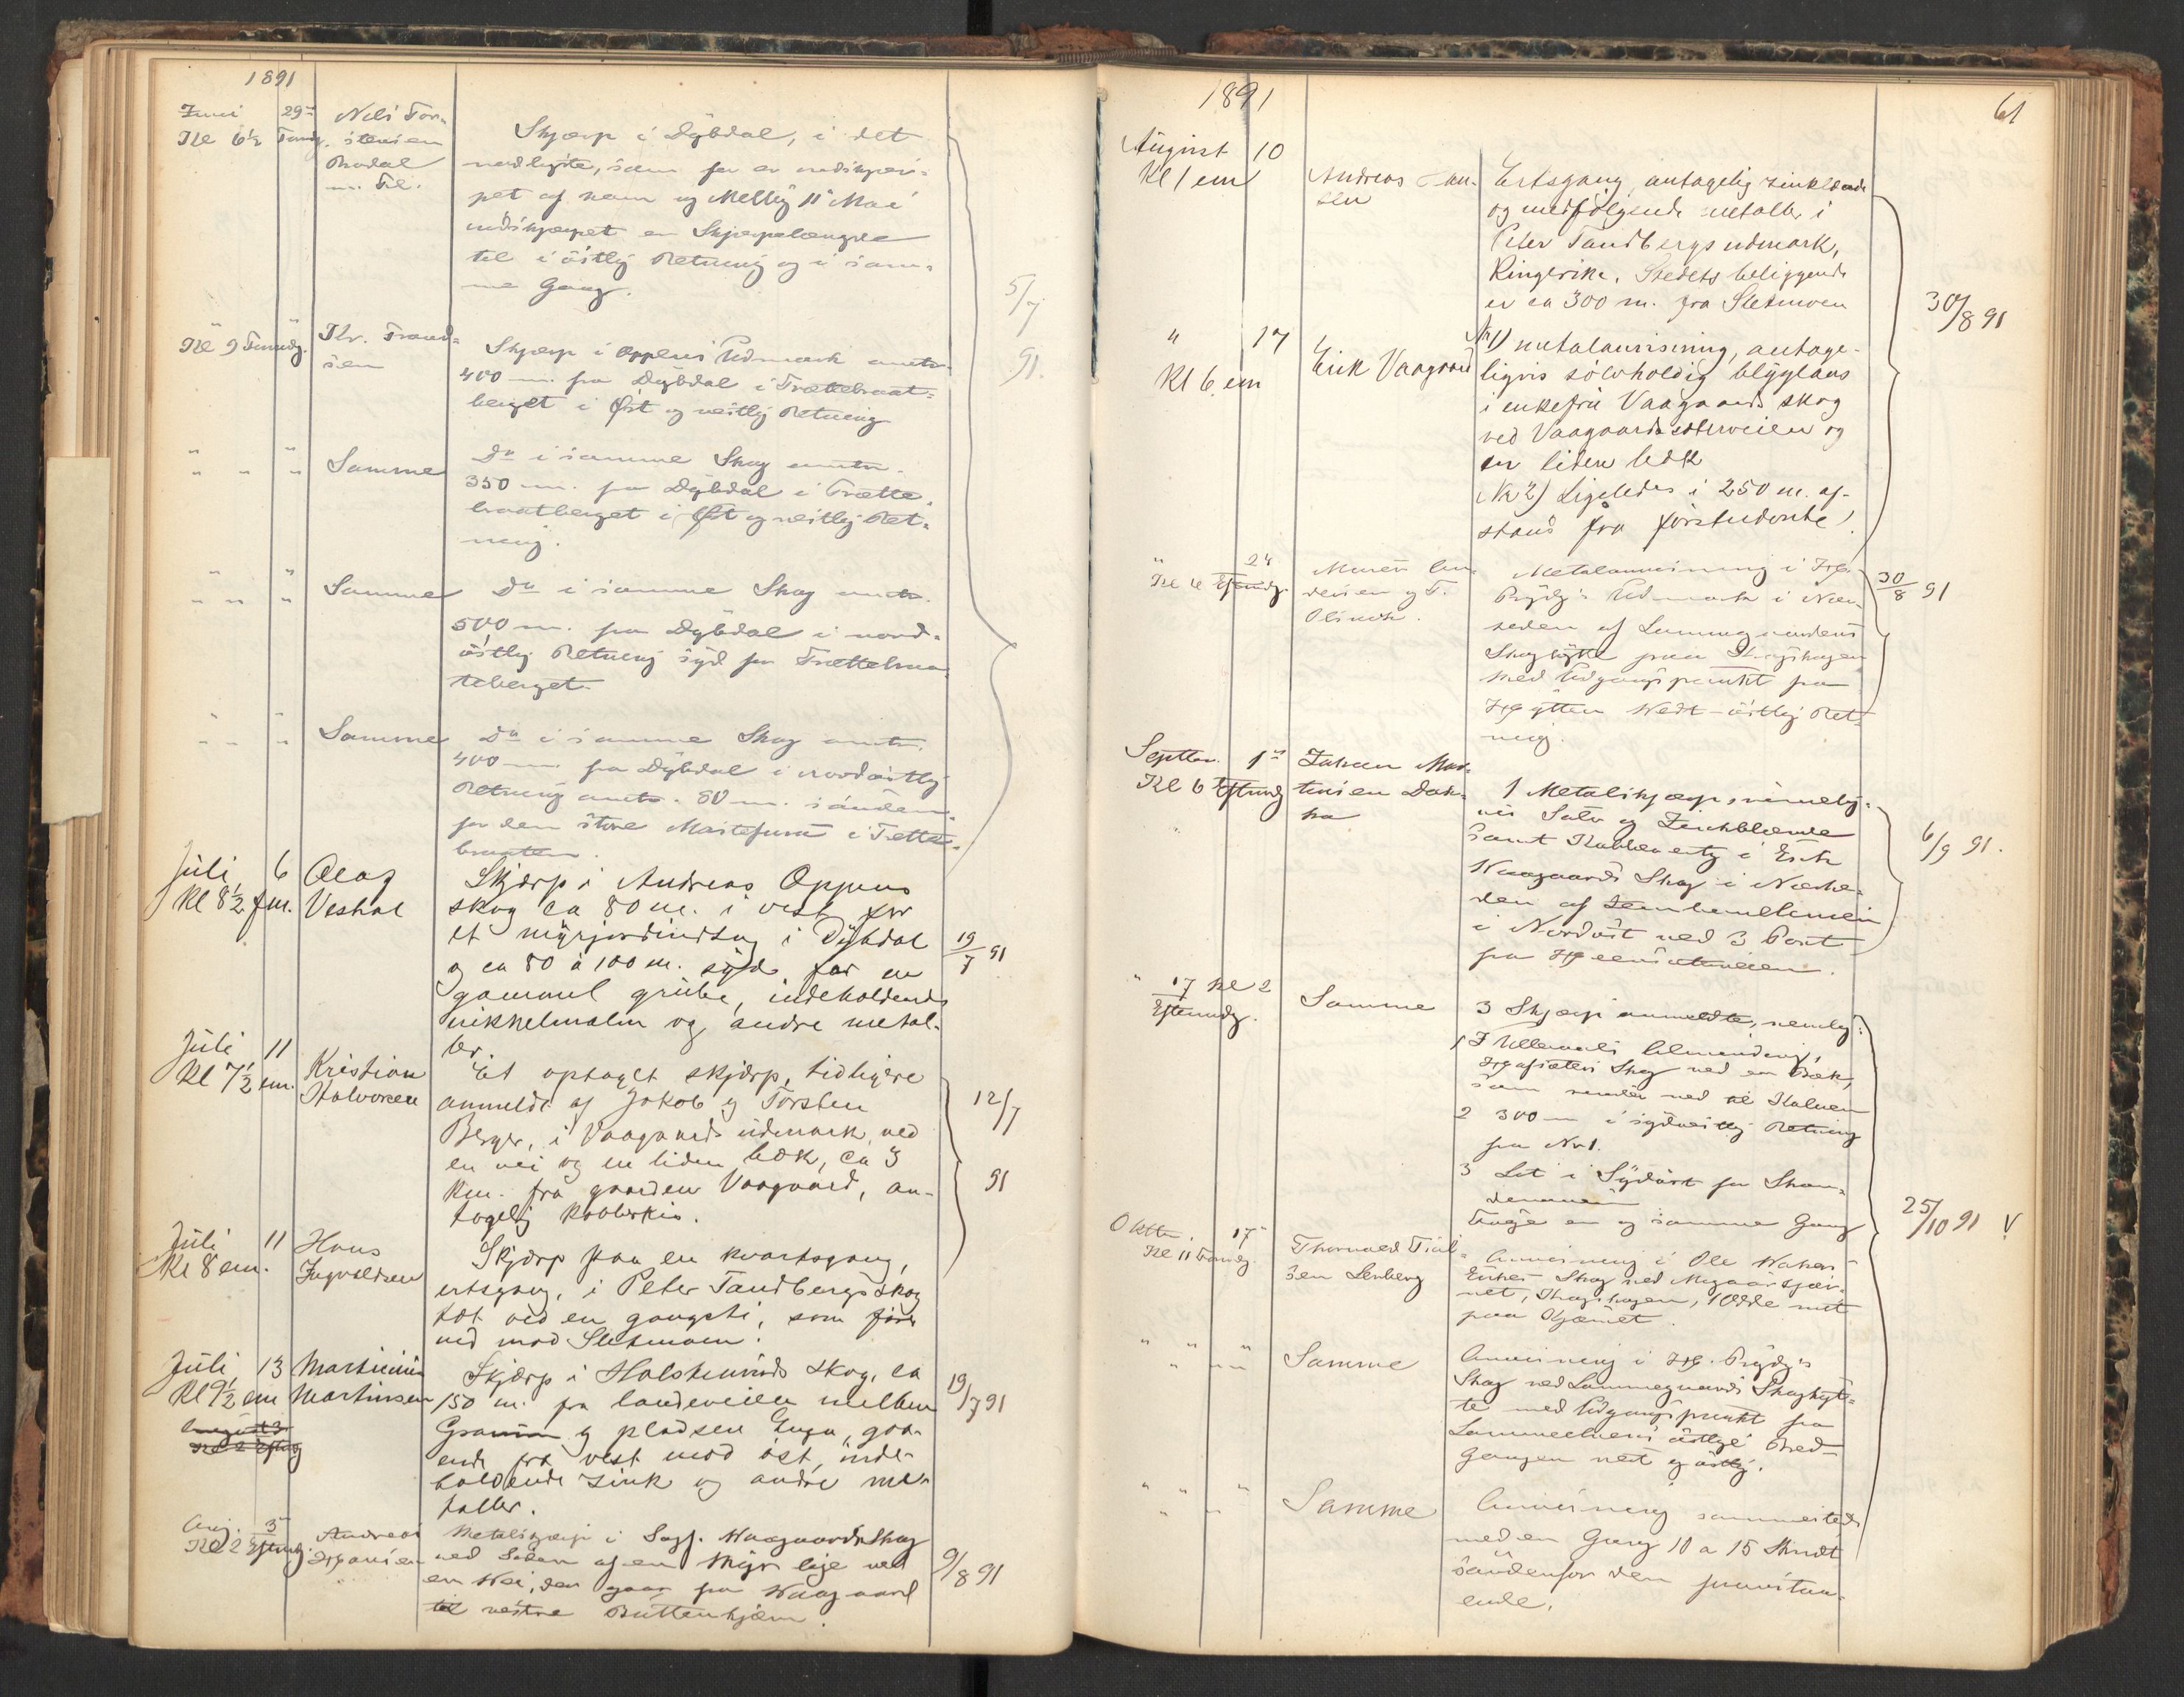 1891
Juni 29de Nils Tor-
Kl 6½ Formdg. stensen
Modal
Skjærp i Dybdal, i det
nordligste, som før er indskjær-
pet af ham og Melby 11 Mai
indskjærpet en Skjærpelængde
til i östlig Retning og i sam-
me Gang.
5/7
91.
Kl 9 Formdg. Kr. Frand-
sen
Skjærp i Oppens Udmark omtr.
400 m. fra Dybdal i Trættebraat-
berget i Øst og vestlig Retning
Samme
Do i samme Skog omtr.
350 m. fra Dybdal i Trætte-
braatberget i Øst og vestlig Ret-
ning.
Samme
Do i samme Skog omtr.
500 m. fra Dybdal i nord-
östlig Retning syd for Trættebraa-
teberget.
Samme
Do i samme Skog omtr.
400 m. fra Dybdal i nordöstlig
Retning omtr. 80 m. sönden-
for den störe Mastefuru i Trætte-
braaten.
Juli 6 Olaf
Kl 8½ fm. Veshal
Skjærp i Andreas Oppens
skog ca 80 m. i vest for
et myrjordindtag i Dybdal
og ca 80 à 100 m. syd for en
gammel grube, indeholdende
nikkelmalm og andre metal-
ler.
19/7 91
Juli 11
Kl 7½ em. Kristian
Halvorsen
Et optaget skjærp, tidligere
anmeldt af Jakob og Torsten
Berger, i Vaagaards udmark ved
en vei og en liden bæk, ca 3
km. fra gaarden Vaagaard, an-
tagelig kobberkis.
12/7
91
Juli 11 Hans
Kl 8 em. Ingvoldsen
Skjærp paa en kvartsgang,
ertsgang, i Peter Tandbergs skog
tæt ved en gangsti, som fører
ned mod Sletmoen.
Juli 13 Martinius
Kl 9½ em Martinsen
Skjærp i Halstenruds skog, ca
150 m. fra landeveien mellem
Gramm og pladsen Enga, gaa-
ende fra vest mod öst, inde-
holdende zink og andre me-
taller.
19/7 91
August 3
Kl 2 Eftmdg
Aug. 3 Andreas
Kl 2 Eftmdg. Hansen
Metalskjærp i Sagf. Waagaards Skog
ved Siden af en Myr lige ved
en Vei, der gaar fra Waagaard
til vestre Buttentjern.
9/8 91
1891
61
August 10
Kl 1 em Andreas Han-
sen
Ertsgang, antagelig zinkblende
og medfølgende metaller i
Peter Tandbergs udmark,
Ringerike. Stedets beliggende
er ca 300 m. fra Sletmoen
30/8 91
" 17
Kl 6 em Erik Vaagaard
No 1) metalanvisning, antage-
ligvis sölvholdig blyglans
i enkefru Vaagaards skog
ved Vaagaardsæterveien og
en liden bæk
No 2) Ligeledes i 250 m. af-
stand fra förstnævnte.
" 24
Kl 6 Eftmdg.
Olsen.
Metalanvisning i Hg.
Prydz's Udmark i Nær-
heden af Lommegaardens
Skoghytte paa Krogskogen
med Udgangspunkt fra
Hytten Vest-östlig Ret-
ning.
30/8 91
Septbr. 1ste Johan Mar-
Kl 6 Eftmdg tinsen Dok-
ka
1 Metalskjærp, rimelig-
vis Sölv og Zinkblende
samt Kobbererts i Erik
Waagaards Skog i Nærhe-
den af
i Nordöst ved 3 Port
fra
6/9 91.
" 17 Kl 2
Eftermdg. Samme
3 Skjærp anmeldte, nemlig:
1 I Ullevaals Almending,
Skog ved en Bæk,
som render ned til
2 300 m i sydvestlig Retning
fra No 1.
3 Lit i Sydöst for
Begge en og samme Gang
25/10 91 V
Oktbr. 17
Kl 11 Formdg. Thorvald
sen Lerberg
Anvisning i Ole
Enkes Skog ved
net, Krogskogen, 1 Odde midt
paa Kjærnet.
Samme
Anvisning i Hg. Prydz's
Skog ved Lommegaards Skoghyt-
te med Udgangspunkt fra
östlige Bred
Gangen vest og östlig.
Samme
Anvisning sammesteds
med en Gang 10 a 15 Skridt
söndenfor den foranstaa-
ende.